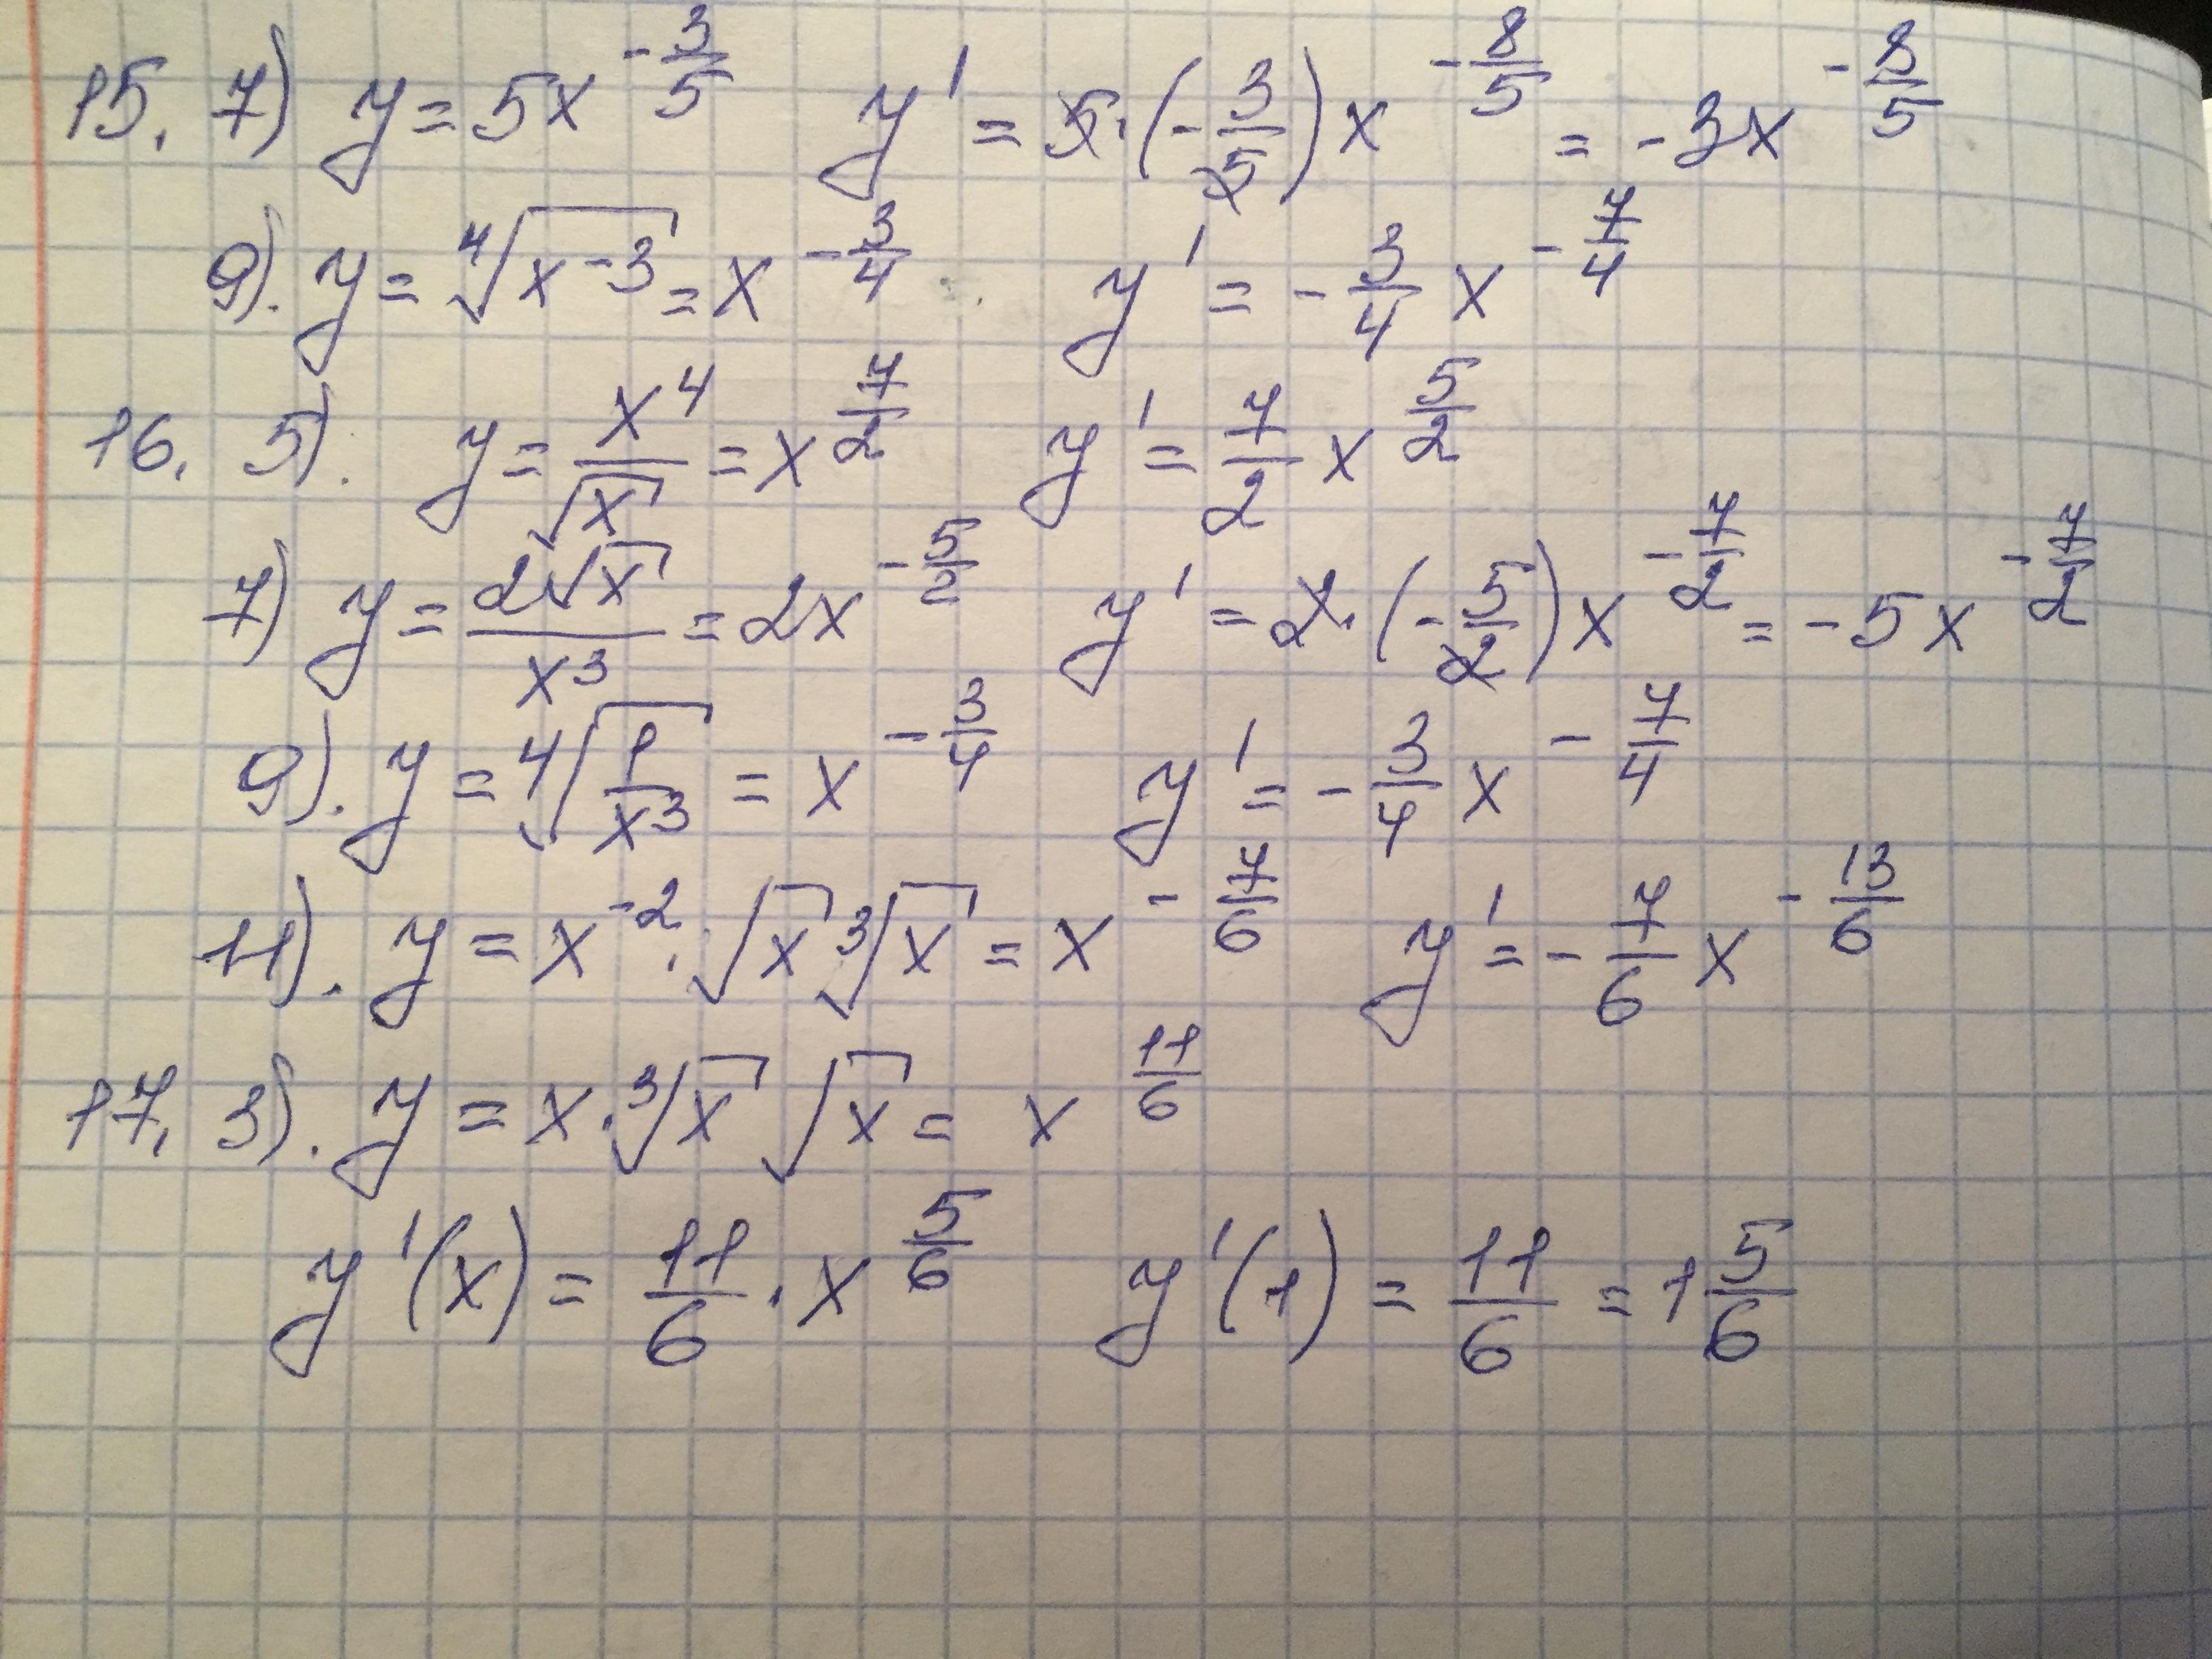 15. 7) y = 5x^{-3/5} y' = 5·(-3/5)x^{-8/5} = -3x^{-8/5}
9). y = ⁴√(x^{-3}) = x^{-3/4} y' = -3/4 x^{-7/4}
16. 5). y = x⁴/√x = x^{7/2} y' = 7/2 x^{5/2}
7) y = 2√x/x³ = 2x^{-5/2} y' = 2·(-5/2)x^{-7/2} = -5x^{-7/2}
9). y = ⁴√(1/x³) = x^{-3/4} y' = -3/4 x^{-7/4}
11). y = x^{-2}·√x ³√x = x^{-7/6} y' = -7/6 x^{-13/6}
17. 3). y = x·³√x √x = x^{11/6}
y'(x) = 11/6 · x^{5/6} y'(1) = 11/6 = 1 5/6